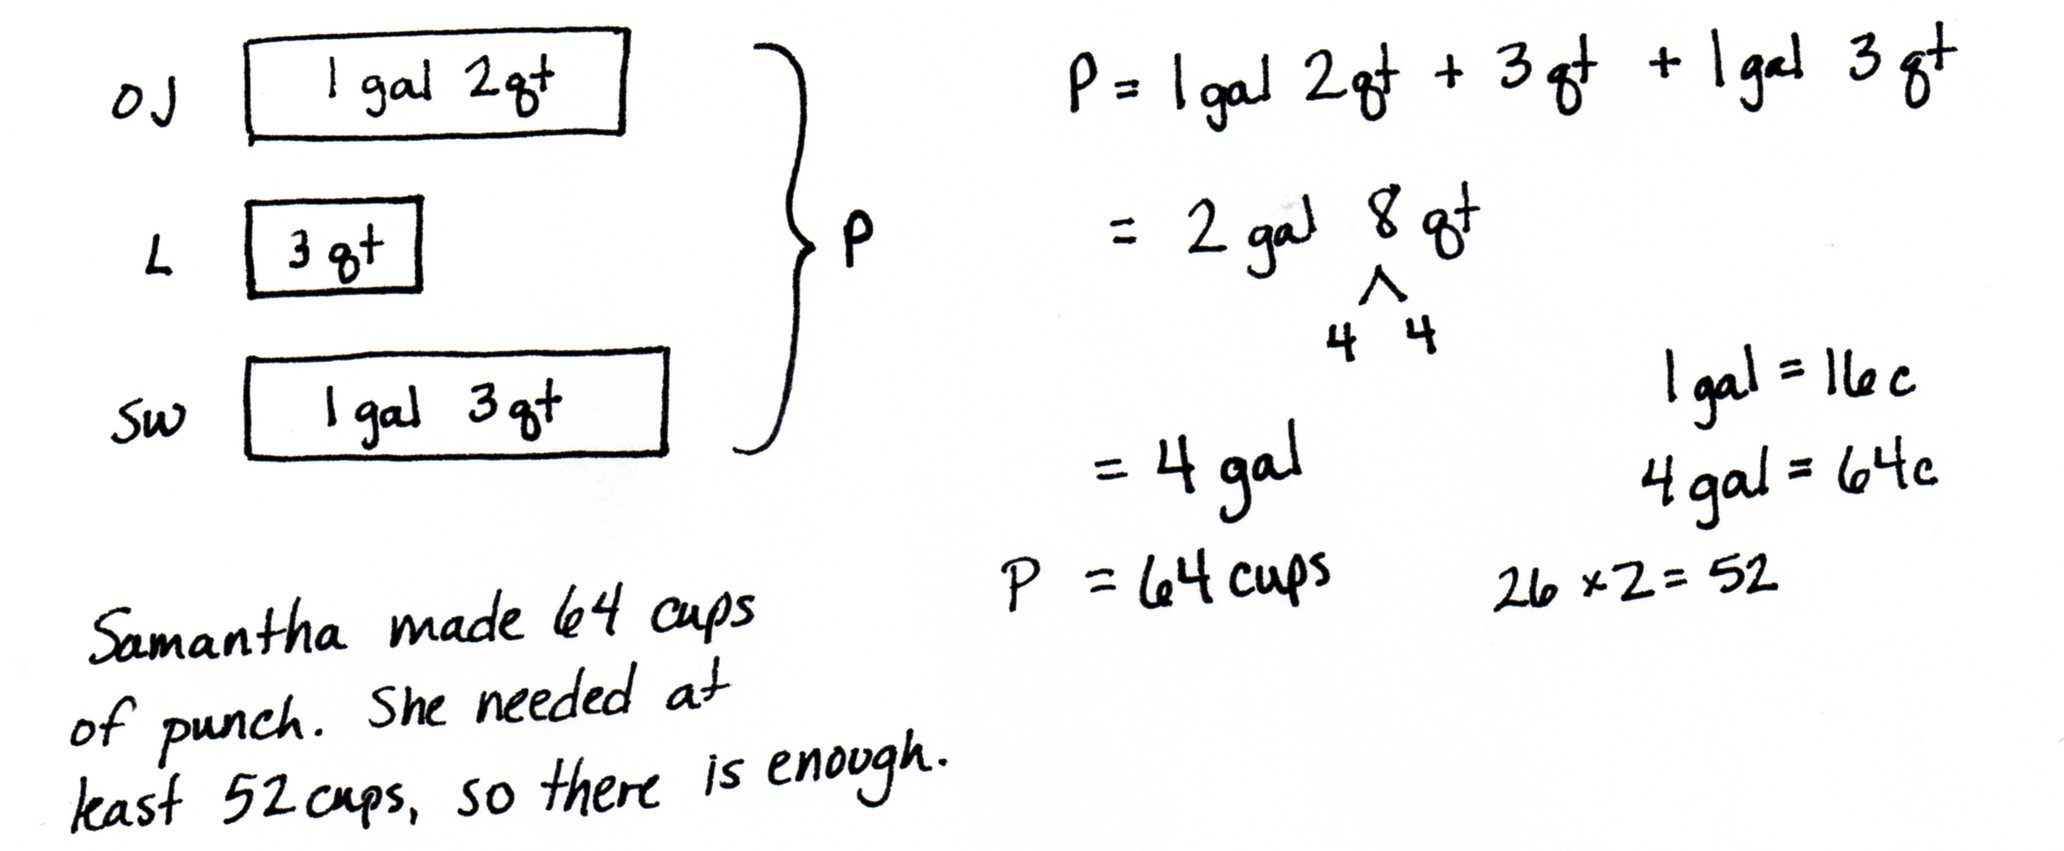 OJ 1 gal 2qt
L 3 qt
SW 1 gal 3qt
P
P = 1gal 2qt + 3qt + 1gal 3 qt
= 2 gal 8 qt
4 4
= 4 gal
P = 64 cups
1 gal = 16c
4 gal = 64c
26 x 2 = 52
Samantha made 64 cups
of punch. She needed at
least 52 cups, so there is enough.